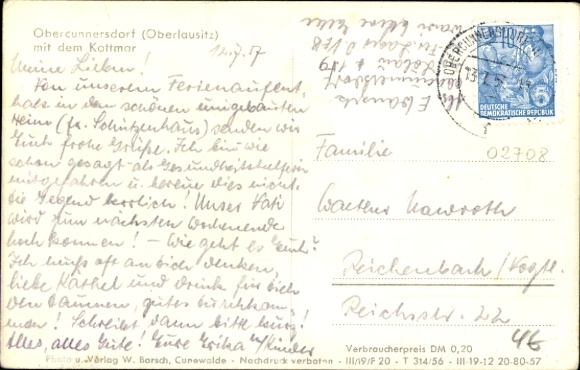 Obercunnersdorf (Oberlausitz)
mit dem Kottmar
12.7.57
Meine Lieben!
Von unserem Ferienaufent-
halt in dem schönen umgebauten
Heim (fr. Schützenhaus) senden wir
Euch frohe Grüße. Ich bin wie
schon gesagt als Gesundheitshelferin
mitgefahren u. bereue dies nicht.
die Gegend herrlich! Unser Vati
wird zum nächsten Wochenende
hoch kommen! – Wie geht es Euch?
Ich muß oft an dich denken,
liebe Kathel und drücke für dich
den Daumen, gutes
Schreibt dann bitte
Alles, alles Gute! Eure Erika u. Kinder
Fe. Lager
Löbau
OBERCUNNERSDORF
13.7.57
DEUTSCHE
DEMOKRATISCHE REPUBLIK
10
Familie
02708
Nawroth
Reichenbach/Vogtl.
Reichsstr. 22
46
Verbraucherpreis DM 0,20
Photo u. Verlag W. Borsch, Cunewalde - Nachdruck verboten - III/19/F 20 - T 314/56 - III-19-12 20-80-57